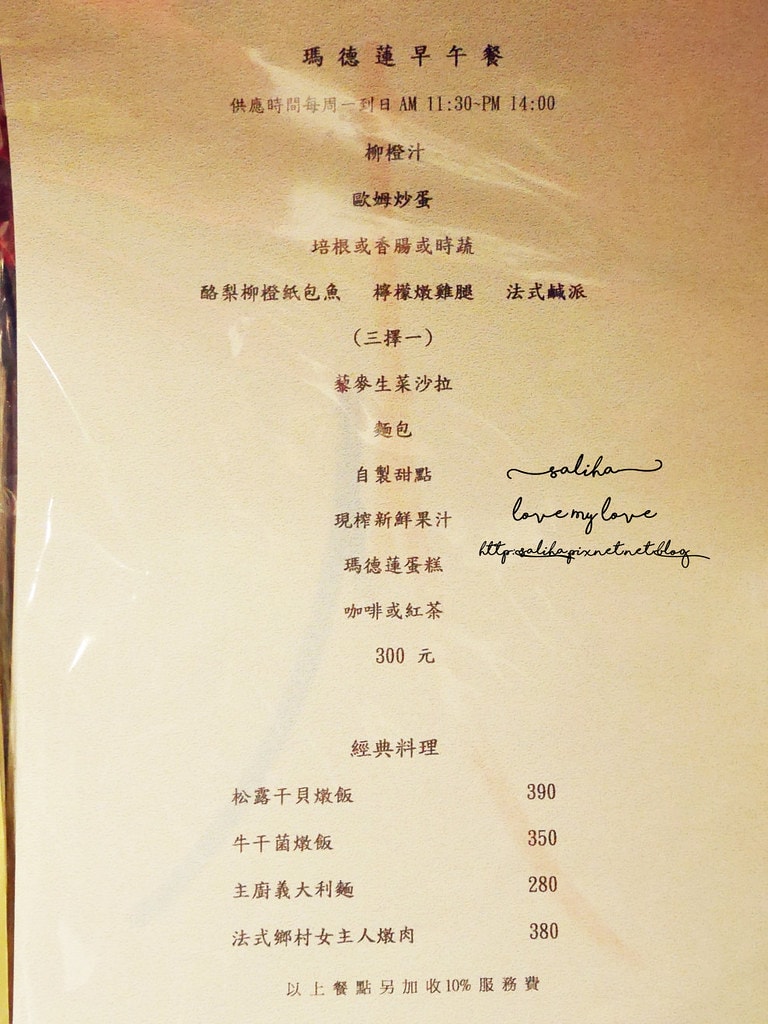 瑪德蓮早午餐
供應時間每周一到日 AM 11:30~PM 14:00
柳橙汁
歐姆炒蛋
培根或香腸或時蔬
酪梨柳橙紙包魚 檸檬燉雞腿 法式鹹派
(三擇一)
藜麥生菜沙拉
麵包
自製甜點
現榨新鮮果汁
瑪德蓮蛋糕
咖啡或紅茶
300 元
saliha
love my love
http:saliha.pixnet.net.blog
經典料理
松露干貝燉飯 390
牛干菌燉飯 350
主廚義大利麵 280
法式鄉村女主人燉肉 380
以上餐點另加收10%服務費